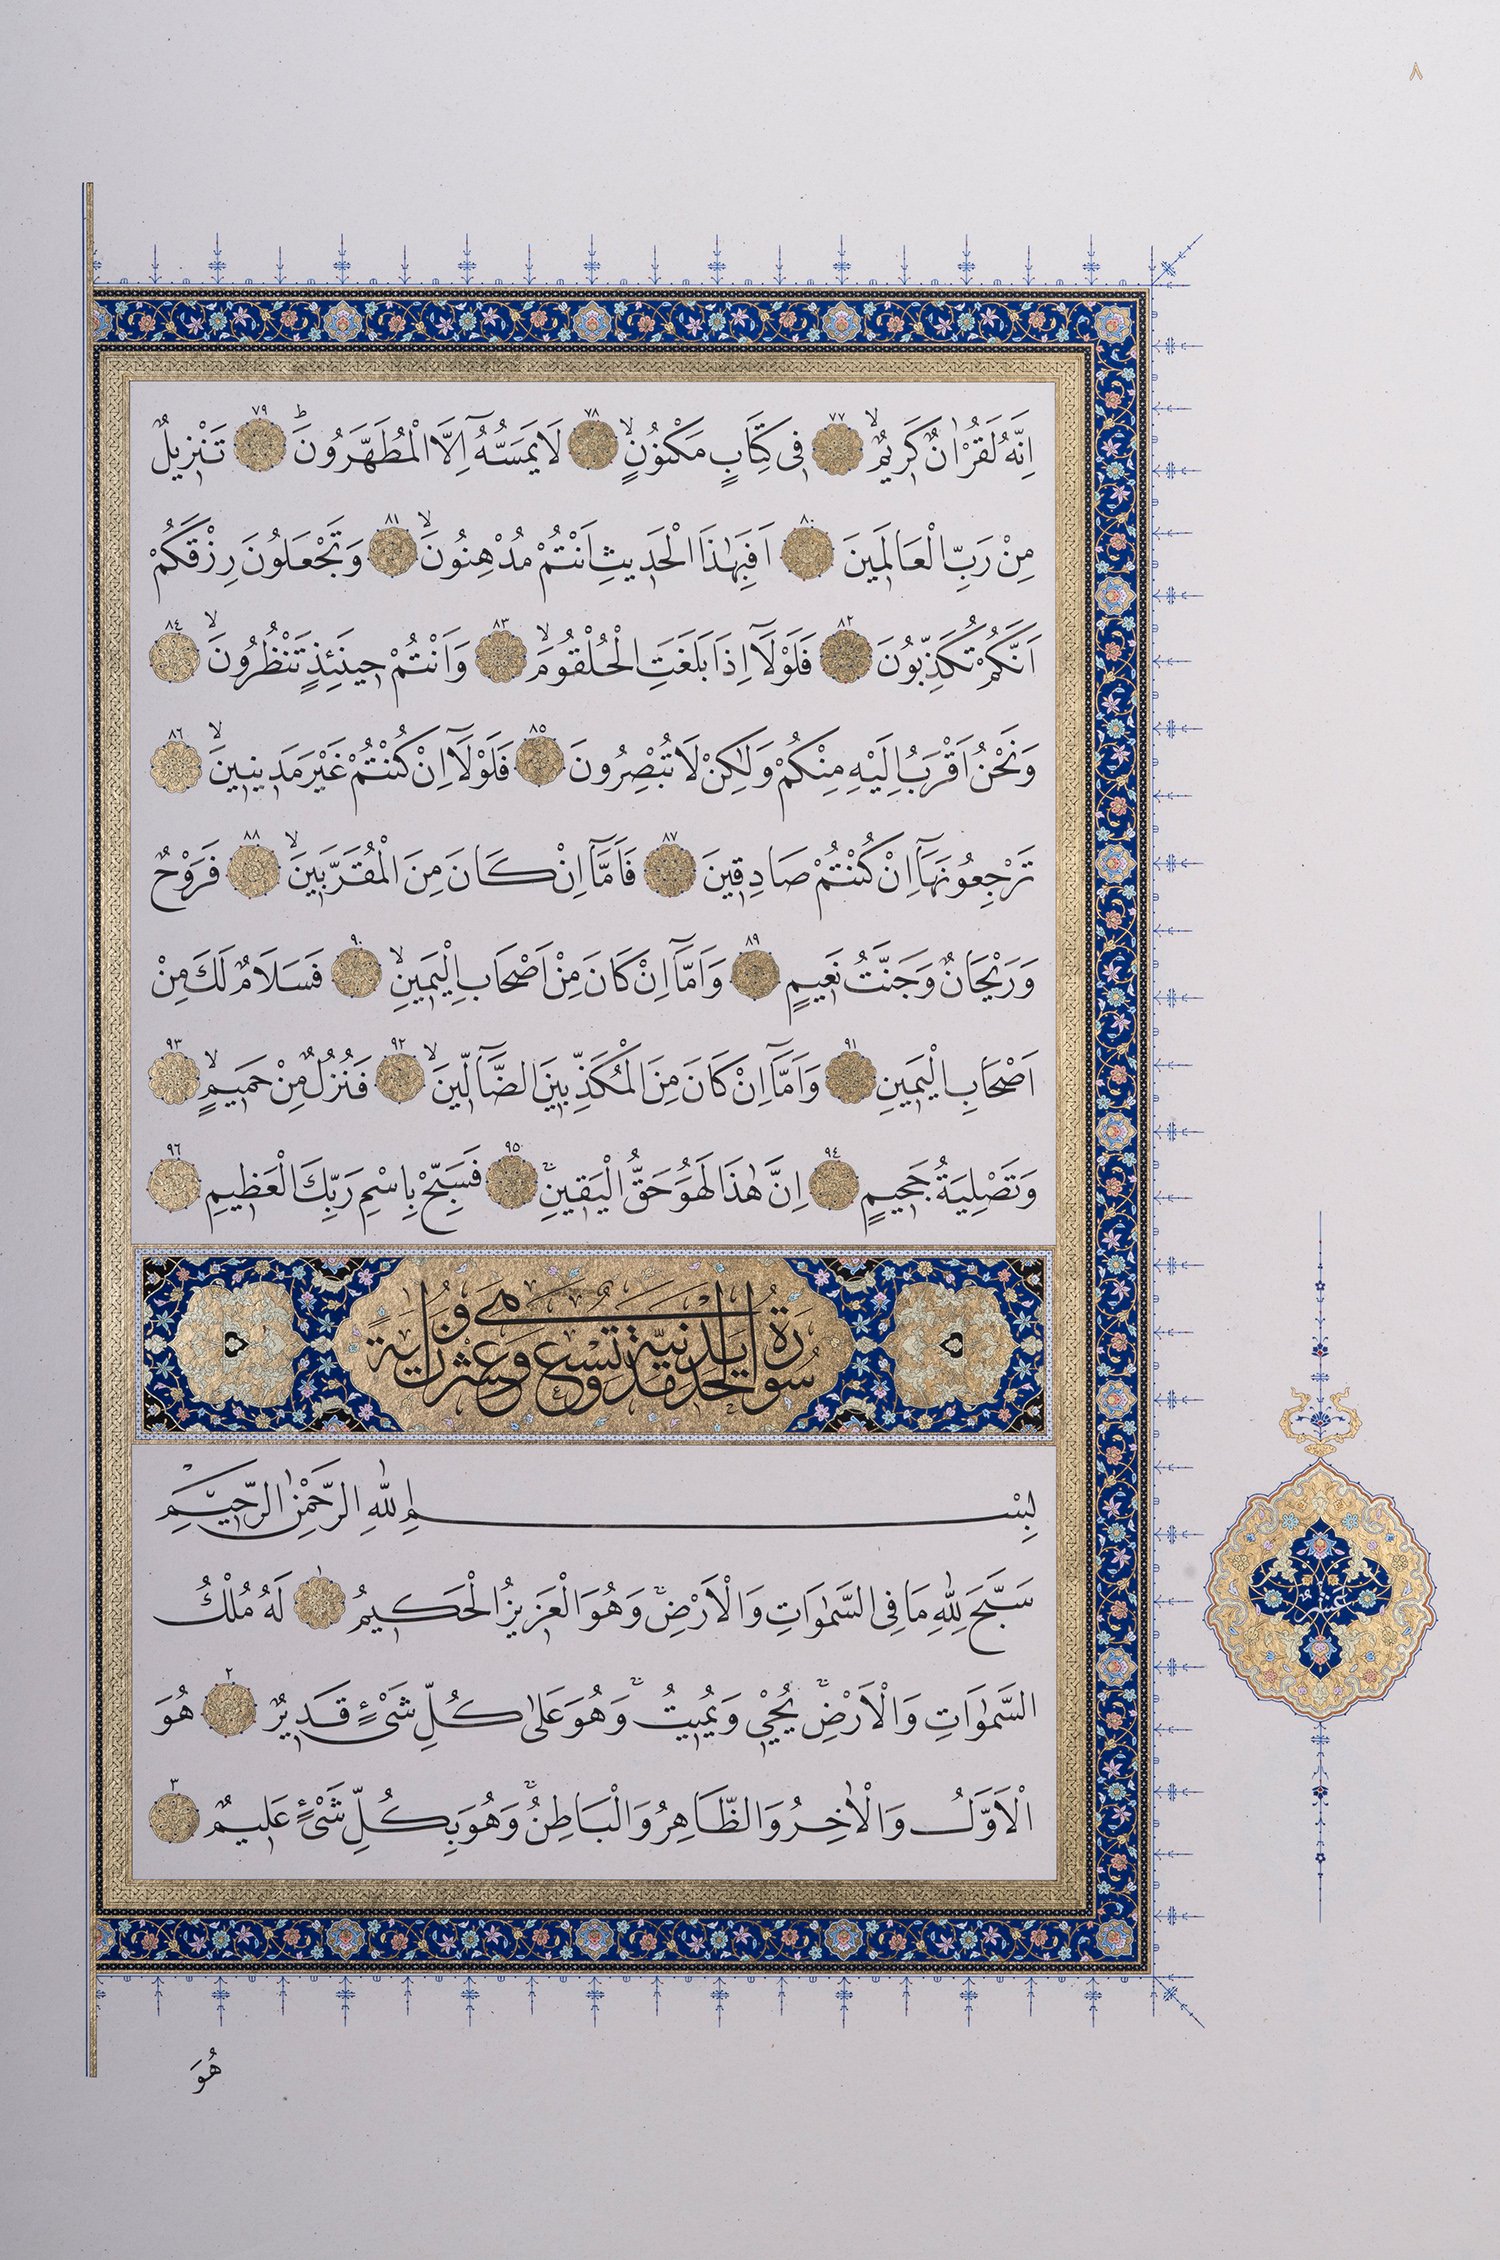 ٨
اِنَّهُ لَقُرْاٰنٌ كَرِيمٌۙ ٧٧ فِى كِتَابٍ مَكْنُونٍۙ ٧٨ لَا يَمَسُّهُٓ اِلَّا الْمُطَهَّرُونَۜ ٧٩ تَنْزِيلٌ
مِنْ رَبِّ الْعَالَمِينَ ٨٠ اَفَبِهٰذَا الْحَدِيثِ اَنْتُمْ مُدْهِنُونَۙ ٨١ وَتَجْعَلُونَ رِزْقَكُمْ
اَنَّكُمْ تُكَذِّبُونَ ٨٢ فَلَوْلَٓا اِذَا بَلَغَتِ الْحُلْقُومَۙ ٨٣ وَاَنْتُمْ حِينَئِذٍ تَنْظُرُونَۙ ٨٤
وَنَحْنُ اَقْرَبُ اِلَيْهِ مِنْكُمْ وَلٰكِنْ لَا تُبْصِرُونَ ٨٥ فَلَوْلَٓا اِنْ كُنْتُمْ غَيْرَ مَدِينِينَۙ ٨٦
تَرْجِعُونَهَٓا اِنْ كُنْتُمْ صَادِقِينَ ٨٧ فَاَمَّٓا اِنْ كَانَ مِنَ الْمُقَرَّبِينَۙ ٨٨ فَرَوْحٌ
وَرَيْحَانٌ وَجَنَّتُ نَعِيمٍ ٨٩ وَاَمَّٓا اِنْ كَانَ مِنْ اَصْحَابِ الْيَمِينِۙ ٩٠ فَسَلَامٌ لَكَ مِنْ
اَصْحَابِ الْيَمِينِ ٩١ وَاَمَّٓا اِنْ كَانَ مِنَ الْمُكَذِّبِينَ الضَّٓالِّينَۙ ٩٢ فَنُزُلٌ مِنْ حَمِيمٍۙ ٩٣
وَتَصْلِيَةُ جَحِيمٍ ٩٤ اِنَّ هٰذَا لَهُوَ حَقُّ الْيَقِينِۚ ٩٥ فَسَبِّحْ بِاسْمِ رَبِّكَ الْعَظِيمِ ٩٦
سُورَةُ الْحَدِيدِ مَدَنِيَّةٌ وَهِىَ تِسْعٌ وَعِشْرُونَ اٰيَةً
بِسْمِ اللّٰهِ الرَّحْمٰنِ الرَّحِيمِ
سَبَّحَ لِلّٰهِ مَا فِى السَّمٰوَاتِ وَالْاَرْضِۚ وَهُوَ الْعَزِيزُ الْحَكِيمُ ١ لَهُ مُلْكُ
السَّمٰوَاتِ وَالْاَرْضِۚ يُحْيِ وَيُمِيتُۚ وَهُوَ عَلٰى كُلِّ شَىْءٍ قَدِيرٌ ٢ هُوَ
الْاَوَّلُ وَالْاٰخِرُ وَالظَّاهِرُ وَالْبَاطِنُۚ وَهُوَ بِكُلِّ شَىْءٍ عَلِيمٌ ٣
عشر
هُوَ